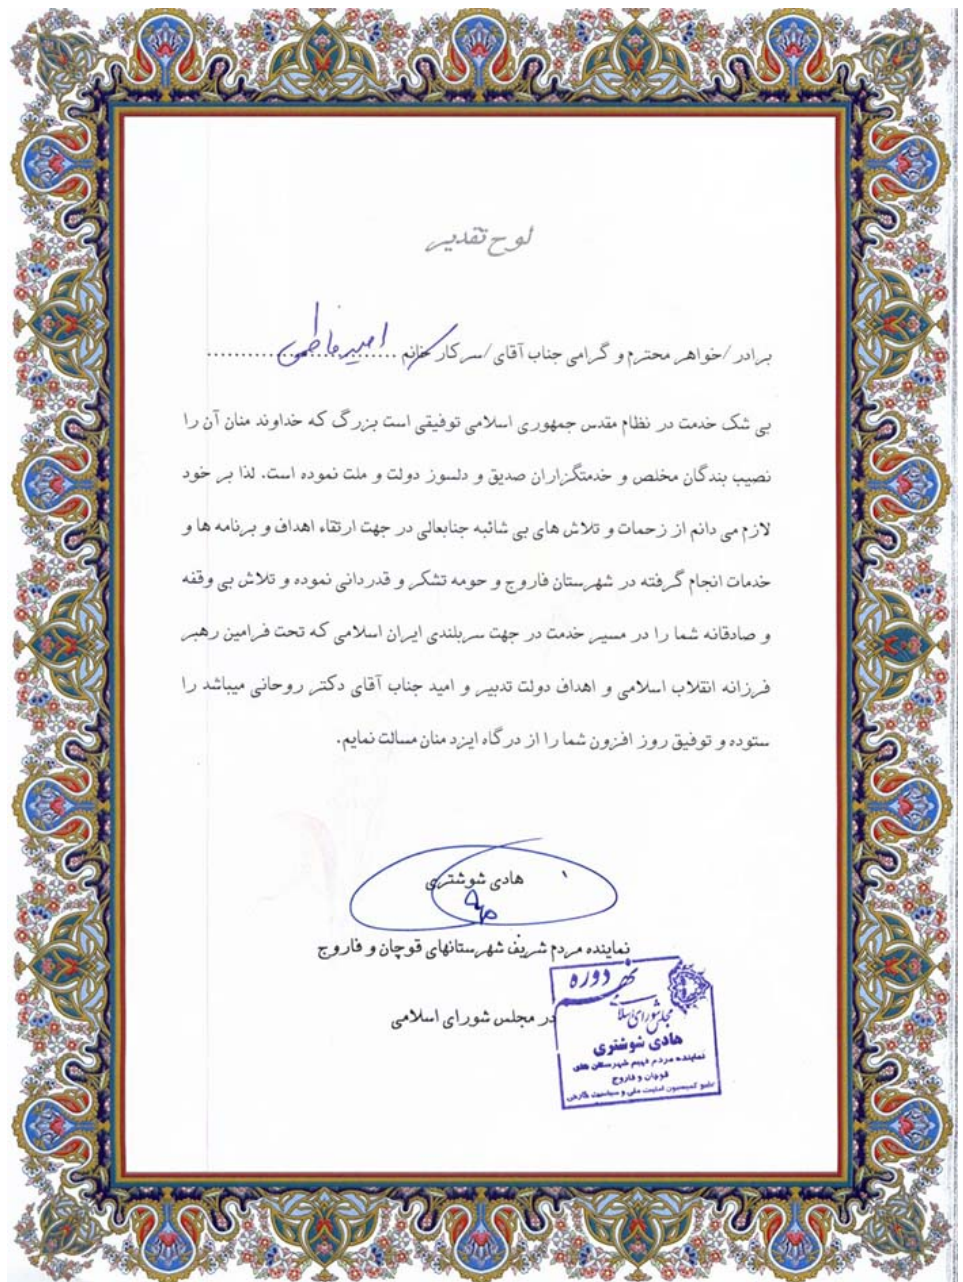 لوح تقدیر
برادر /خواهر محترم و گرامی جناب آقای /سرکار خانم ........ امیر فاطمی ........
بی شک خدمت در نظام مقدس جمهوری اسلامی توفیقی است بزرگ که خداوند منان آن را
نصیب بندگان مخلص و خدمتگزاران صدیق و دلسوز دولت و ملت نموده است. لذا بر خود
لازم می دانم از زحمات و تلاش های بی شائبه جنابعالی در جهت ارتقاء اهداف و برنامه ها و
خدمات انجام گرفته در شهرستان فاروج و حومه تشکر و قدردانی نموده و تلاش بی وقفه
و صادقانه شما را در مسیر خدمت در جهت سربلندی ایران اسلامی که تحت فرامین رهبر
فرزانه انقلاب اسلامی و اهداف دولت تدبیر و امید جناب آقای دکتر روحانی میباشد را
ستوده و توفیق روز افزون شما را از درگاه ایزد منان مسالت نمایم.
هادی شوشتری
نماینده مردم شریف شهرستانهای قوچان و فاروج
در مجلس شورای اسلامی
دوره نهم
مجلس شورای اسلامی
هادی شوشتری
نماینده مردم فهیم شهرستان های
قوچان و فاروج
عضو کمیسیون امنیت ملی و سیاست خارجی